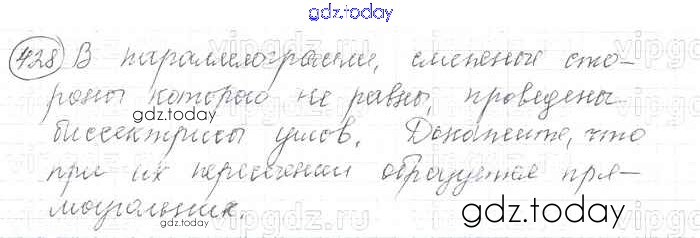 gdz.today
428 В параллелограмме, смежные сто-
роны которого не равны, проведены
биссектрисы углов. Докажите, что
при их пересечении образуется пря-
моугольник.
gdz.today